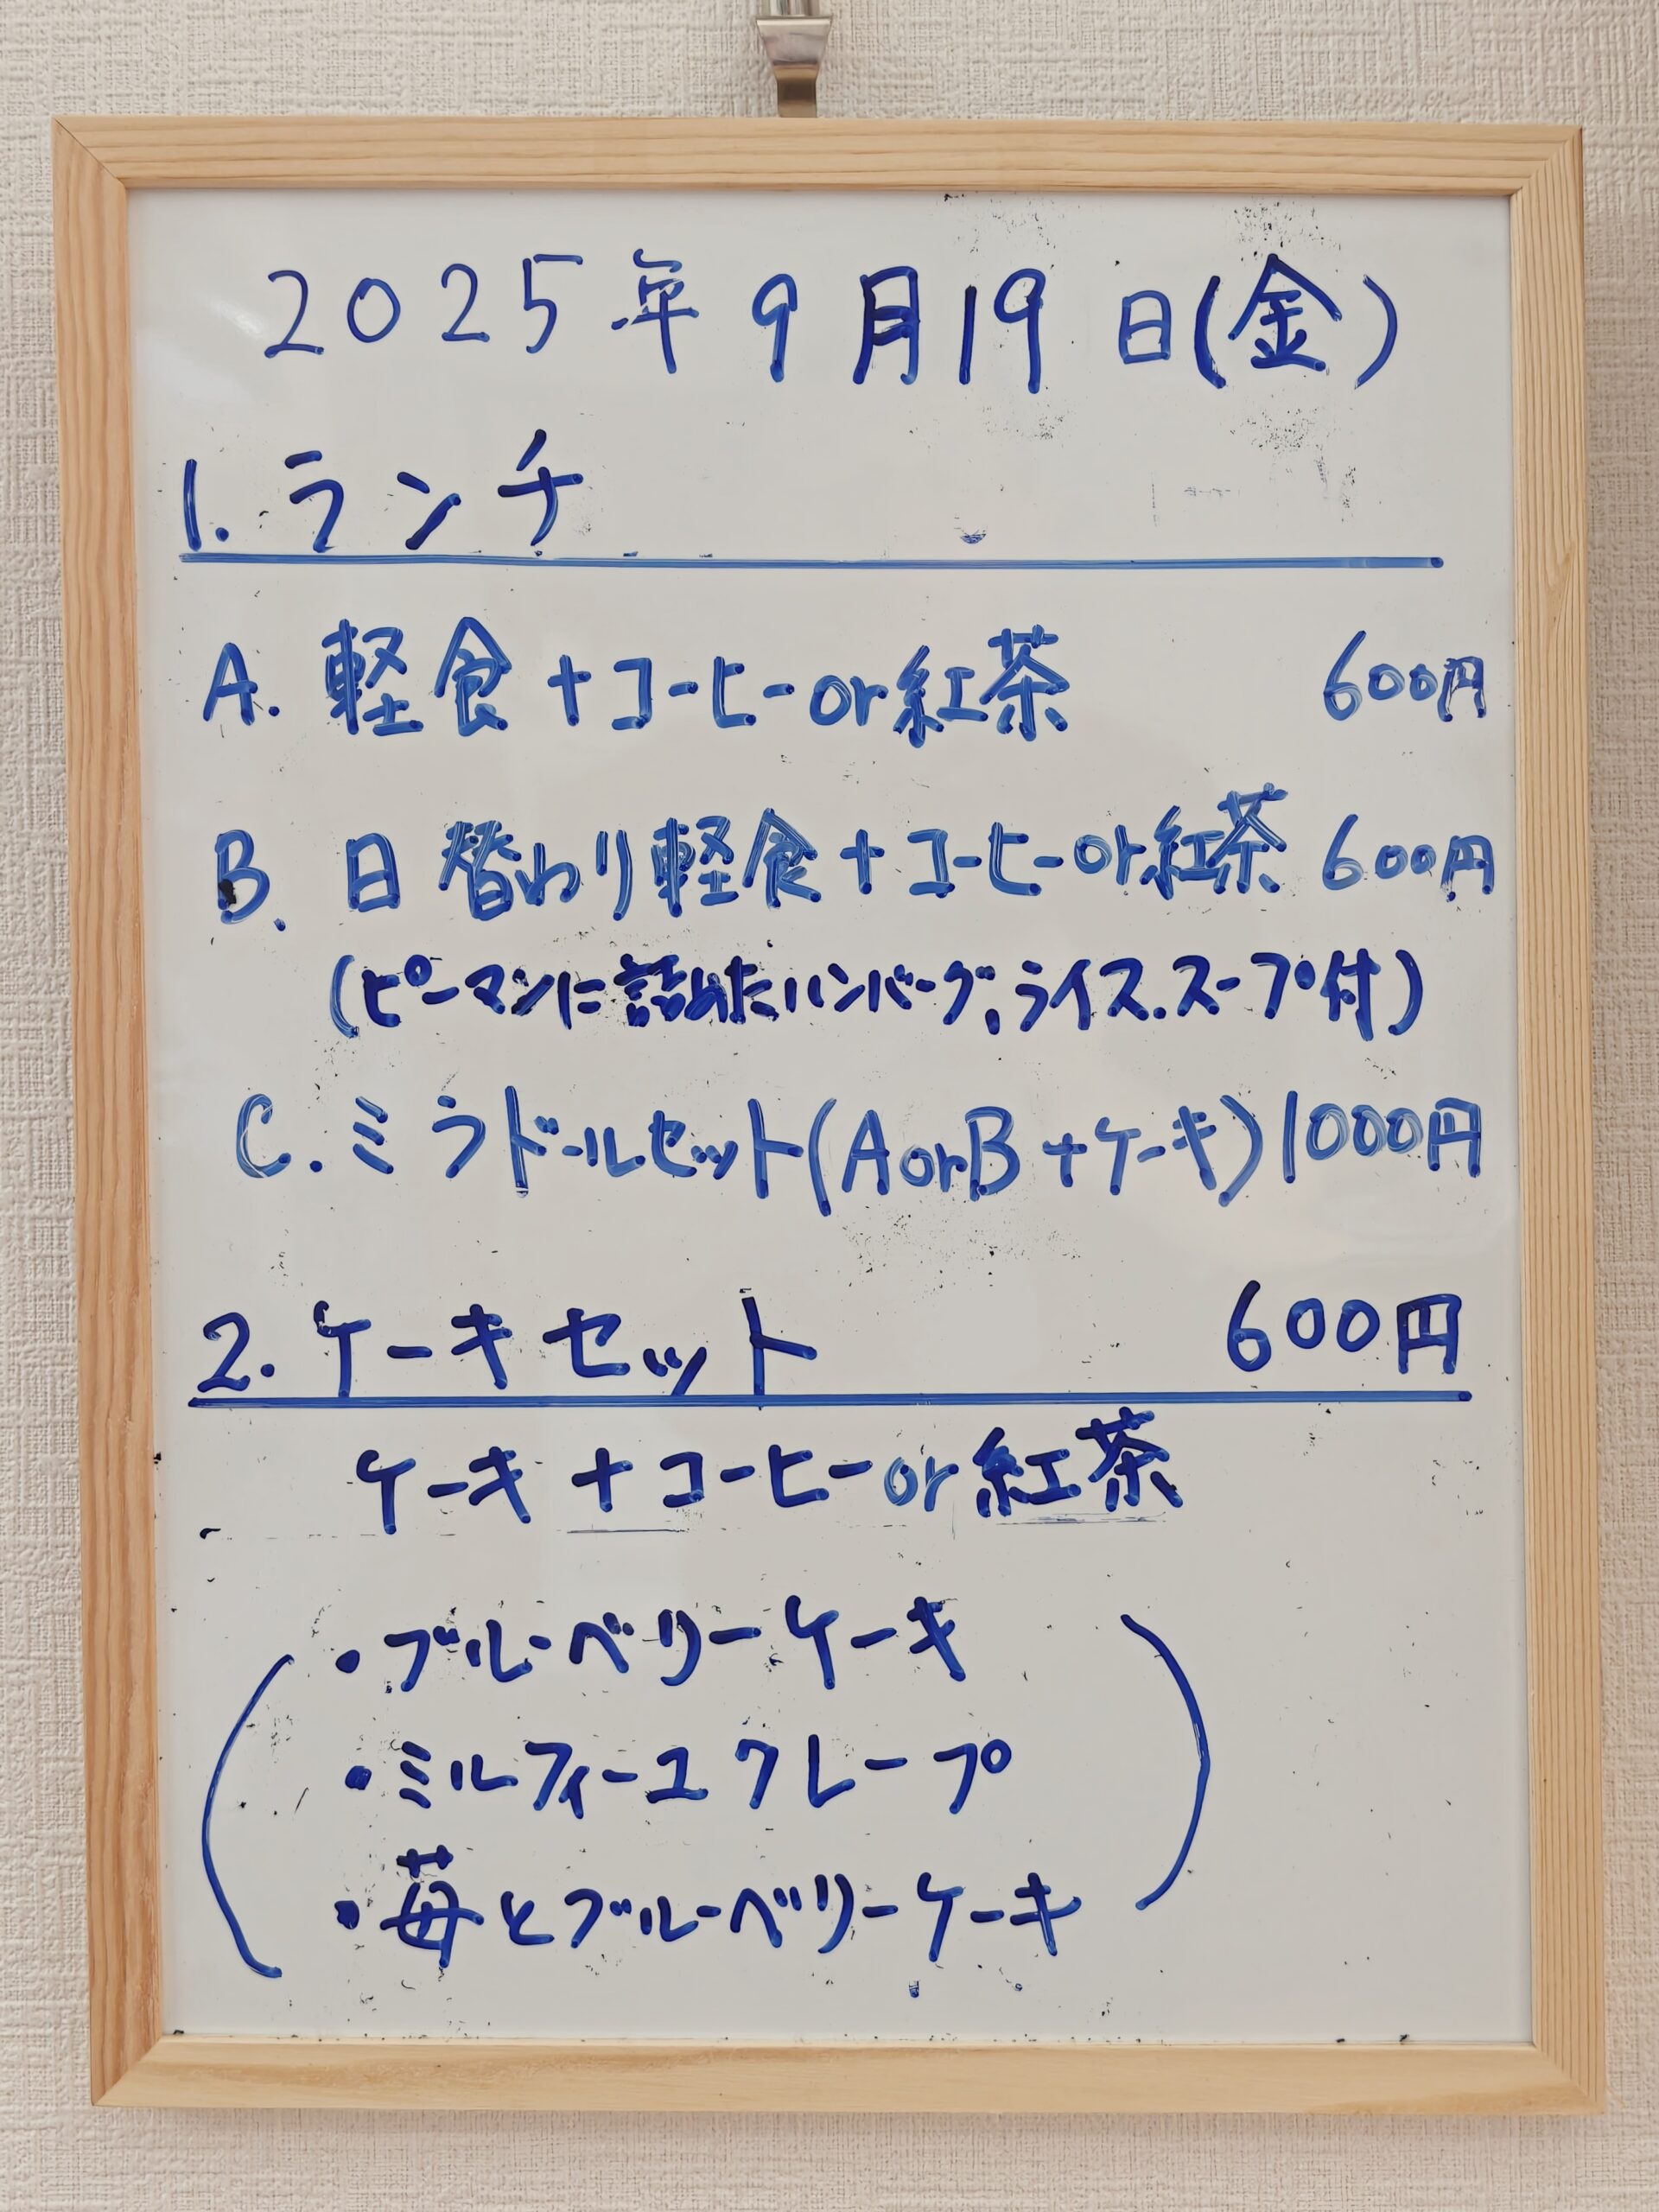 2025年9月19日(金)
1. ランチ
A. 軽食+コーヒーor紅茶 600円
B. 日替わり軽食+コーヒーor紅茶 600円
(ピーマンに詰めたハンバーグ、ライス.スープ付)
C. ミラドールセット(AorB+ケーキ)1000円
2. ケーキセット 600円
ケーキ+コーヒーor紅茶
・ブルーベリーケーキ
・ミルフィーユクレープ
・苺とブルーベリーケーキ